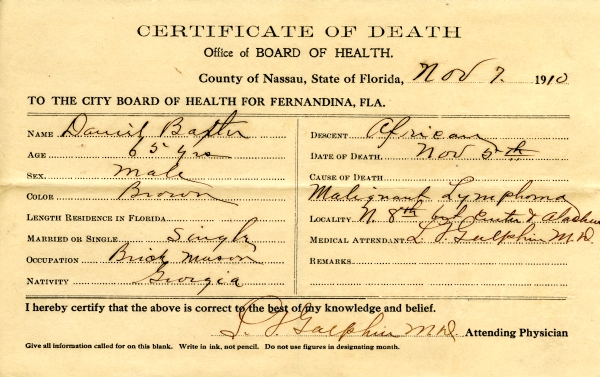 CERTIFICATE OF DEATH
Office of BOARD OF HEALTH.
County of Nassau, State of Florida, Nov 7. 1910
TO THE CITY BOARD OF HEALTH FOR FERNANDINA, FLA.
NAME Daniel Baxter
AGE 65 yrs
SEX. Male
COLOR Brown
LENGTH RESIDENCE IN FLORIDA
MARRIED OR SINGLE Single
OCCUPATION Brick Mason
NATIVITY Georgia
DESCENT African
DATE OF DEATH. Nov 5th
CAUSE OF DEATH
Malignant Lymphoma
LOCALITY N. 8th bet Centre & Alachua
MEDICAL ATTENDANT. Galphin M.D.
REMARKS
I hereby certify that the above is correct to the best of my knowledge and belief.
Galphin M.D. Attending Physician
Give all information called for on this blank. Write in ink, not pencil. Do not use figures in designating month.